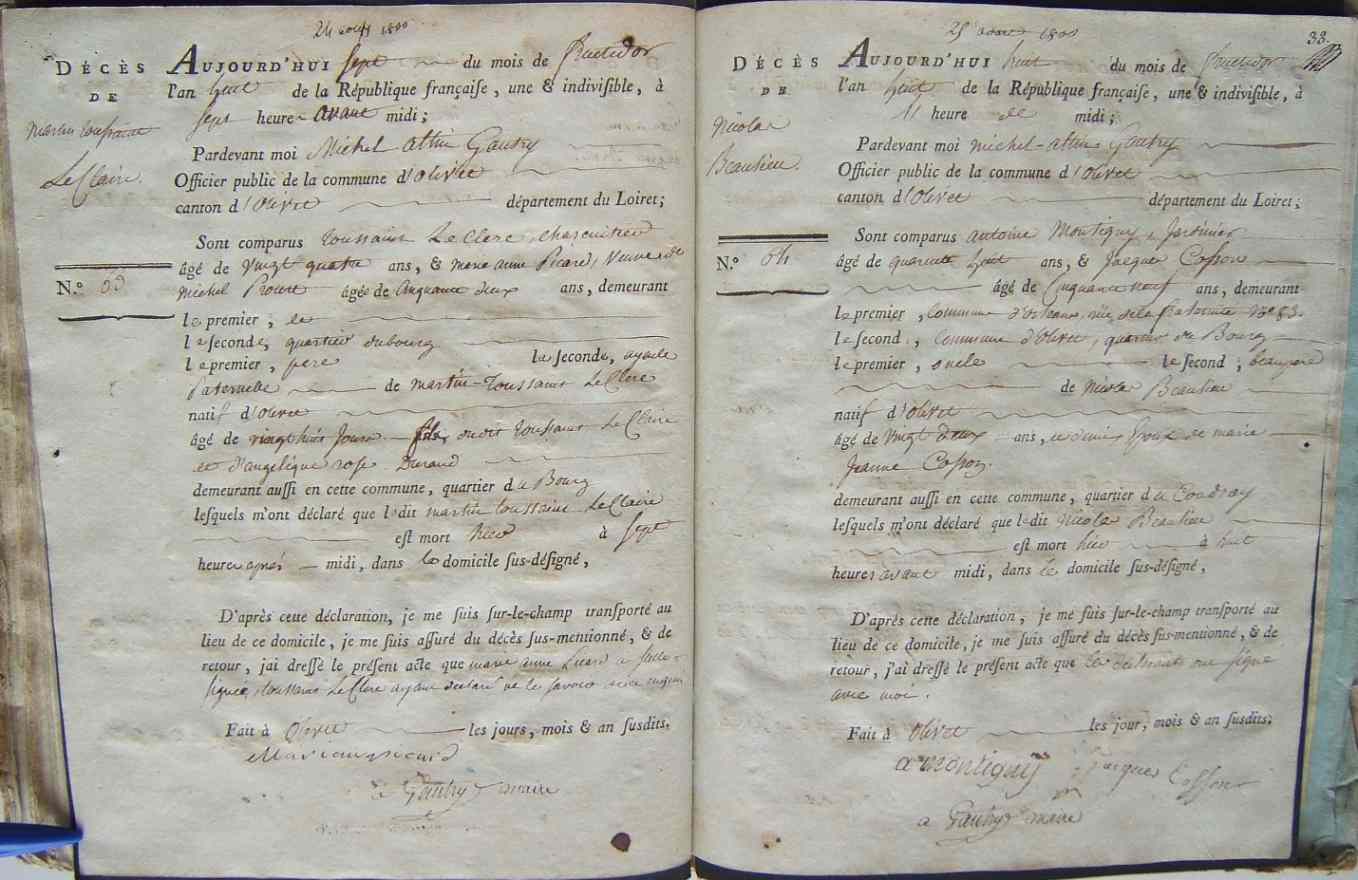 24 aoust 1800
DÉCÈS
DE
martin toussaint
LeClaire.
N.º 63
AUJOURD'HUI sept du mois de fructidor
l'an huit de la République française, une & indivisible, à
sept heure avant midi;
Pardevant moi Michel attin Gautry
Officier public de la commune d'Olivet
canton d'Olivet département du Loiret;
Sont comparus toussaint LeClerc, charcuitier
âgé de vingt quatre ans, & marie anne Picard, Veuve de
Michel Proust âgée de cinquante deux ans, demeurant
le premier, et
la seconde, quartier du bourg
le premier, pere la seconde, ayeule
Paternelle de martin-Toussaint LeClerc
natif d'olivet
âgé de vingt huit Jours fils, dudit toussaint LeClaire
et d'angelique rose Durand
demeurant aussi en cette commune, quartier du Bourg
lesquels m'ont déclaré que ledit martin toussaint LeClaire
est mort hier à sept
heures après midi, dans le domicile sus-désigné,
D'après cette déclaration, je me suis sur-le-champ transporté au
lieu de ce domicile, je me suis assuré du décès sus-mentionné, & de
retour, j'ai dressé le présent acte que marie anne Picard a seule
signée, toussaint LeClerc ayant declaré ne le savoir
Fait à Olivet les jours, mois & an susdits.
Marianne picard
a Gautry maire
25 aoust 1800
33.
DÉCÈS
DE
Nicolas
Beaulieu.
N.º 64
AUJOURD'HUI huit du mois de fructidor
l'an huit de la République française, une & indivisible, à
11 heure de midi;
Pardevant moi michel-attin Gautry
Officier public de la commune d'Olivet
canton d'Olivet département du Loiret;
Sont comparus antoine Montigny, Jardinier
âgé de quarante huit ans, & Jacques Cosson
âgé de Cinquante neuf ans, demeurant
le premier, commune d'orleans, rue de la fraternité nº 83.
le second, commune d'olivet, quartier du Bourg
le premier, oncle le second, beaupere
de Nicolas Beaulieu
natif d'olivet
âgé de vingt deux ans, et demi Epoux de marie
Jeanne Cosson.
demeurant aussi en cette commune, quartier du Coudray
lesquels m'ont déclaré que ledit Nicolas Beaulieu
est mort hier à huit
heures avant midi, dans le domicile sus-désigné,
D'après cette déclaration, je me suis sur-le-champ transporté au
lieu de ce domicile, je me suis assuré du décès sus-mentionné, & de
retour, j'ai dressé le présent acte que les déclarants ont signé
avec moi.
Fait à Olivet les jour, mois & an susdits.
a montigny Jacques Cosson
a Gautry maire